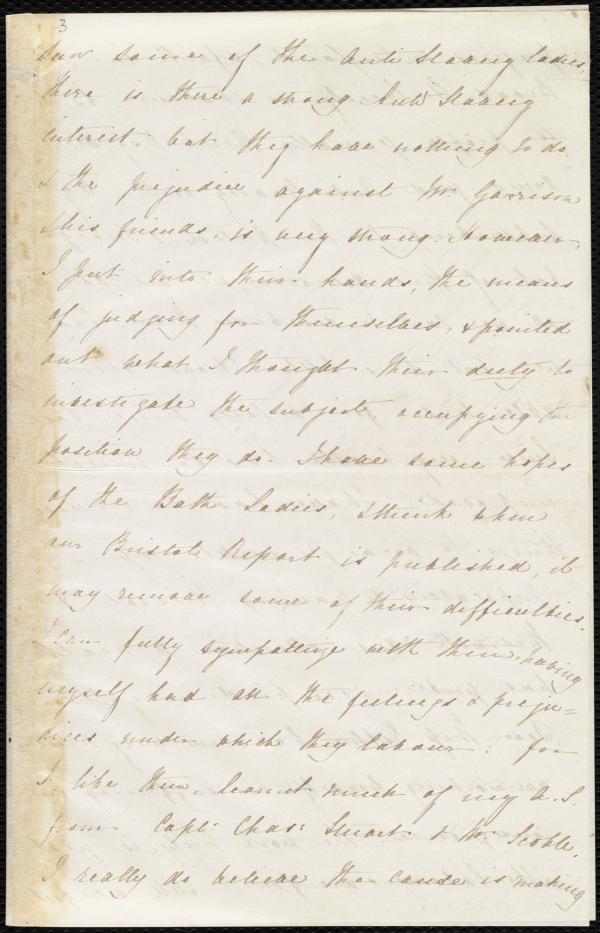 3
saw some of the Anti Slavery ladies,
there is there a strong Anti Slavery
interest but they have nothing to do.
& the prejudice against Mr. Garrison
& his friends, is very strong. However,
I put into their hands, the means
of judging for themselves, & pointed
out what I thought their duty to
investigate the subject, occupying the
position they do. I have some hopes
of the Bath Ladies, & think when
our Bristol Report is published, it
may remove some of their difficulties.
I can fully sympathize with them, having
myself had all the feelings & preju=
dices under which they labour: for
I, like them, learnt much of my A. S.
from Capt: Chas: Stuart & Mr. Scoble.
I really do believe the cause is making